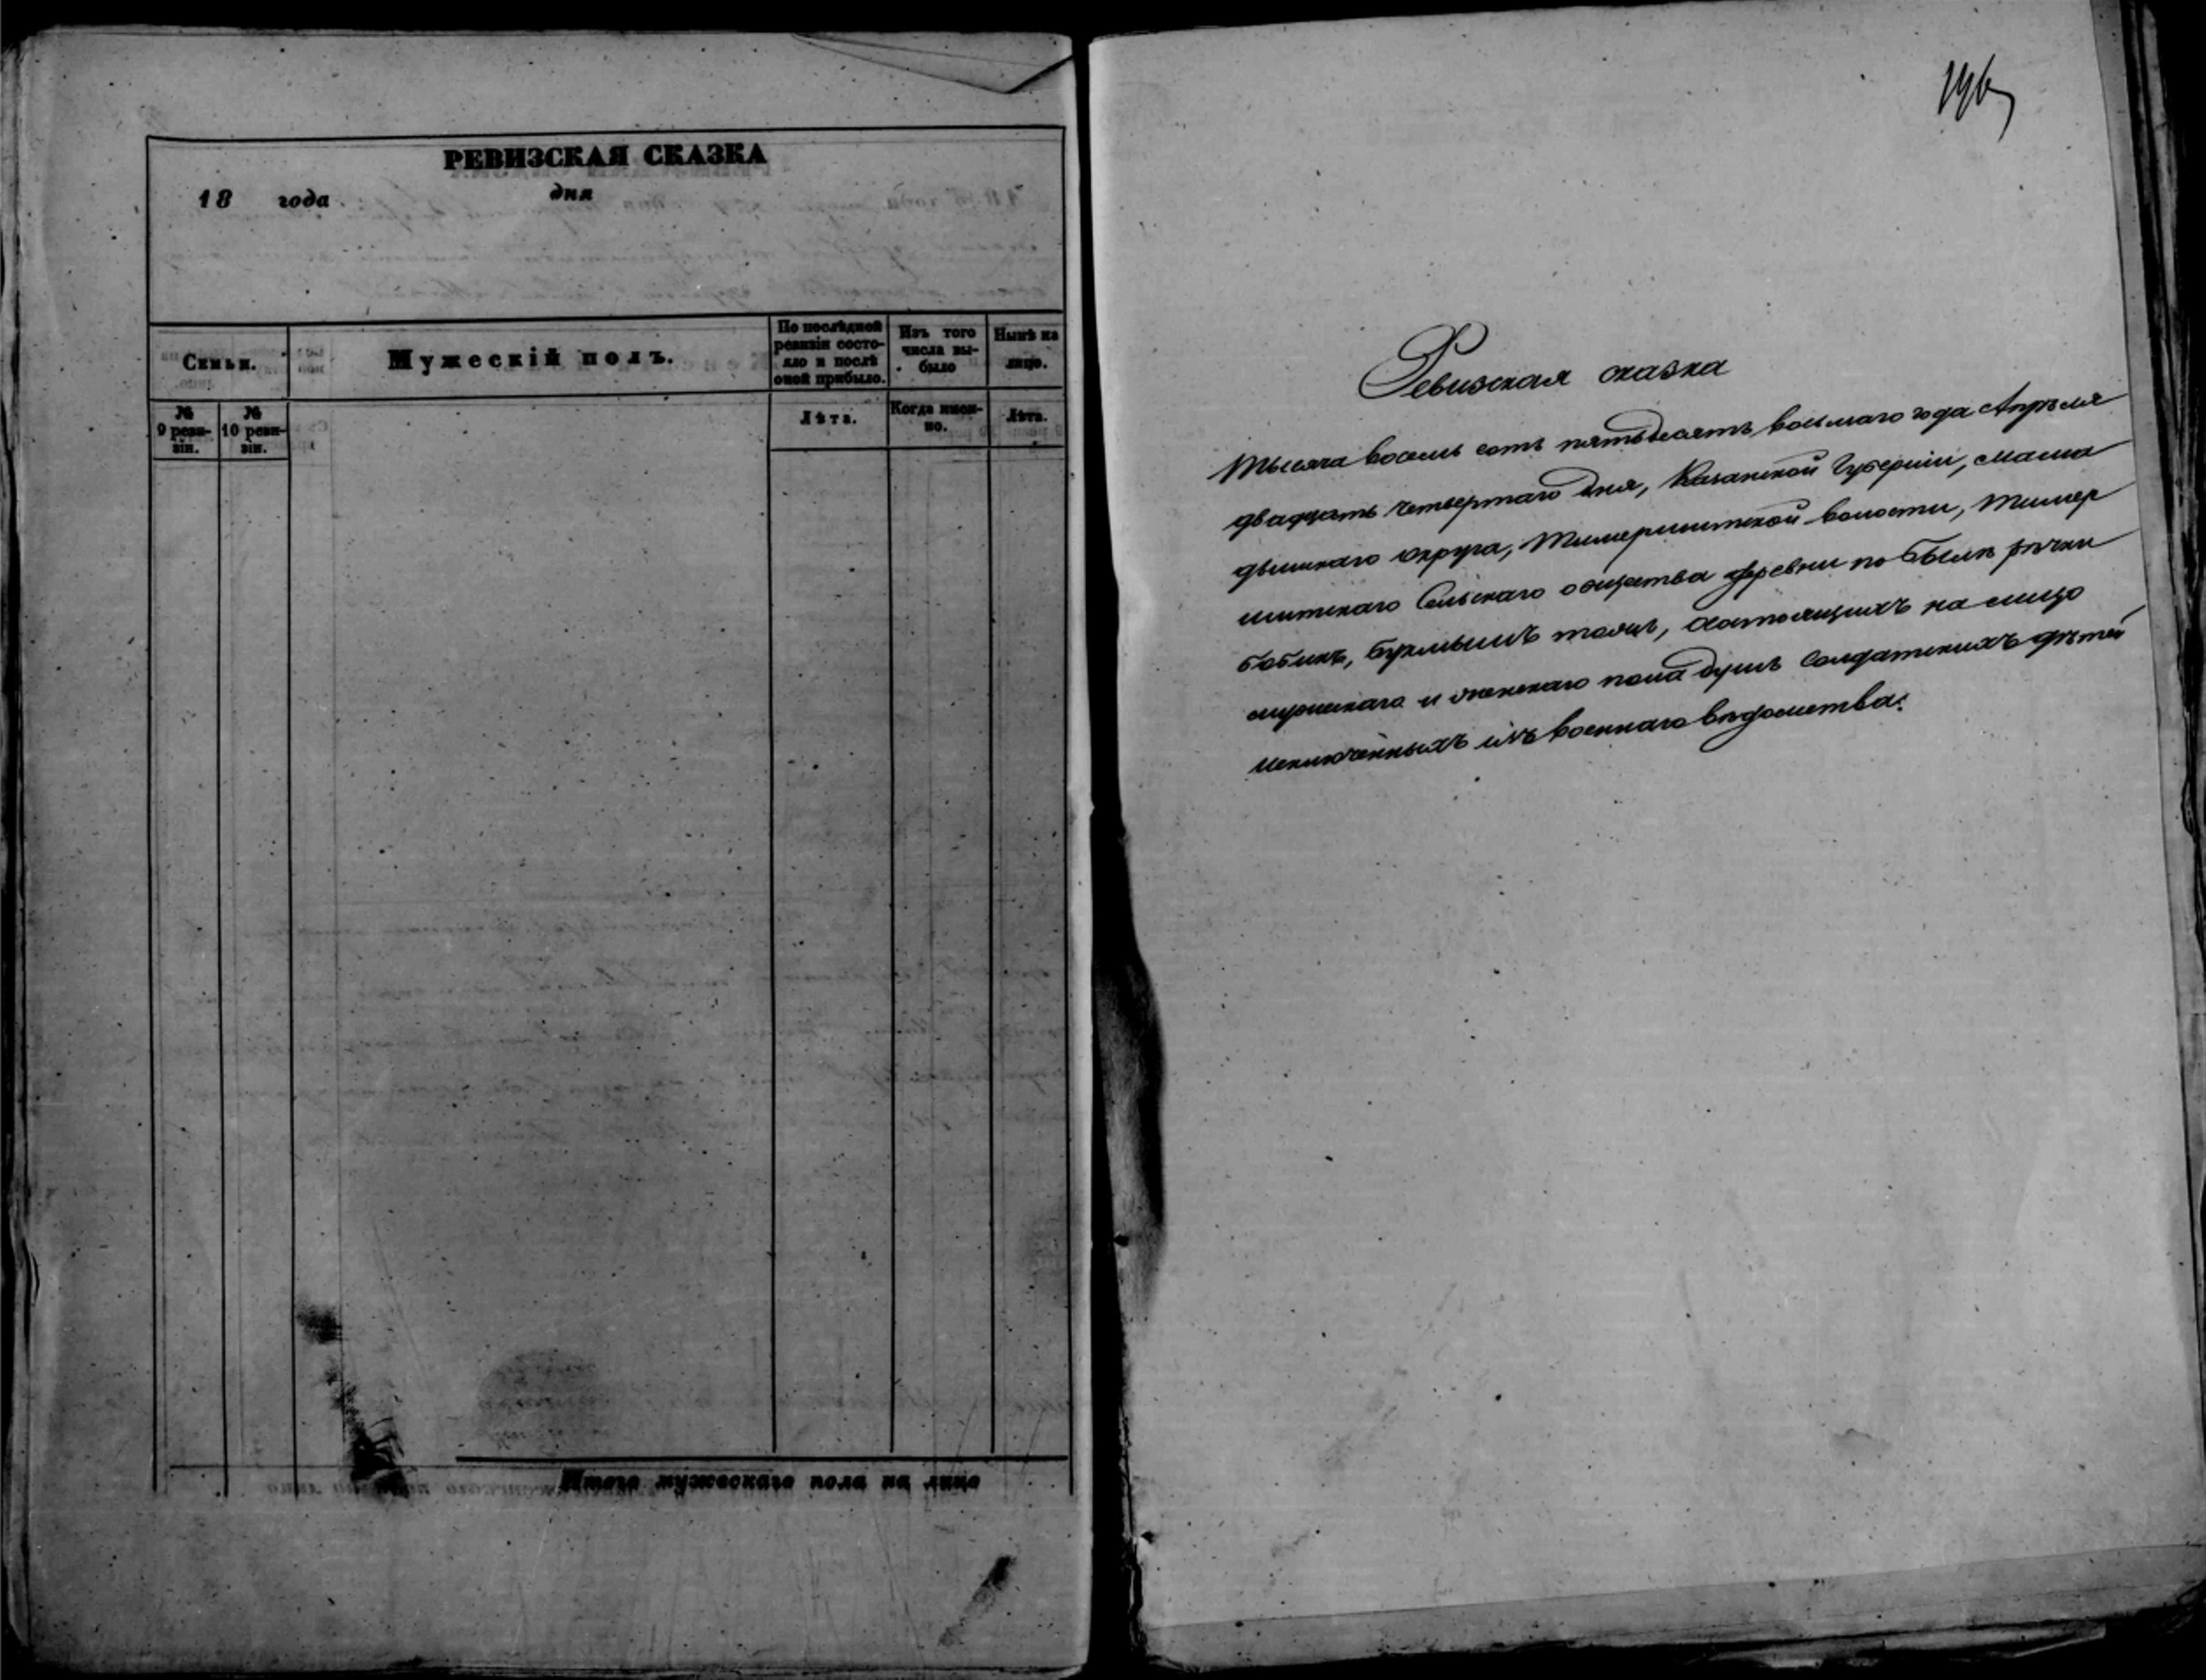 РЕВИЗСКАЯ СКАЗКА
18 года дня
Семьи.
Мужескій полъ.
По послѣдней ревизіи состояло и послѣ оной прибыло.
Изъ того числа выбыло
Нынѣ на лицо.
№ 9 ревизіи.
№ 10 ревизіи.
Лѣта.
Когда именно.
Лѣта.
Итого мужескаго пола на лицо
Ревизская сказка
тысяча восемь сотъ пятьдесятъ восьмаго года Апрѣля
двадцать четвертаго дня, Казанской Губерніи, Мама
дышскаго округа, Тимершитской волости, Тимер
шитскаго Сельскаго общества деревни по рѣчки
тожъ, состоящихъ на лицо
мужескаго и женскаго пола душъ солдатскихъ дѣтей
исключенныхъ изъ военнаго вѣдомства.